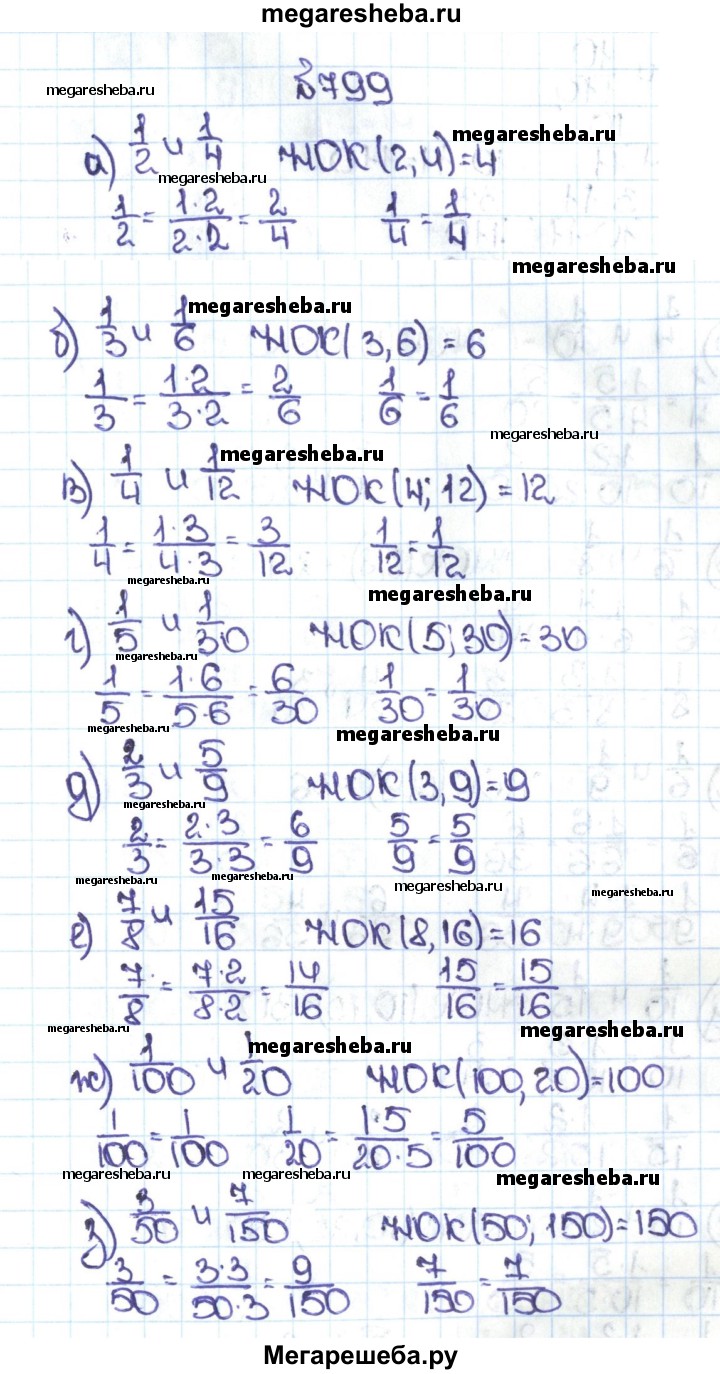 megaresheba.ru
№799
megaresheba.ru
а) 1/2 и 1/4 НОК(2,4)=4
megaresheba.ru
megaresheba.ru
1/2 = 1·2/2·2 = 2/4 1/4 = 1/4
megaresheba.ru
megaresheba.ru
б) 1/3 и 1/6 НОК(3,6) = 6
1/3 = 1·2/3·2 = 2/6 1/6 = 1/6
megaresheba.ru
megaresheba.ru
в) 1/4 и 1/12 НОК(4; 12) = 12
1/4 = 1·3/4·3 = 3/12 1/12 = 1/12
megaresheba.ru
megaresheba.ru
г) 1/5 и 1/30 НОК(5; 30) = 30
megaresheba.ru
1/5 = 1·6/5·6 = 6/30 1/30 = 1/30
megaresheba.ru
megaresheba.ru
д) 2/3 и 5/9 НОК(3,9)=9
megaresheba.ru
2/3 = 2·3/3·3 = 6/9 5/9 = 5/9
megaresheba.ru
megaresheba.ru
megaresheba.ru
е) 7/8 и 15/16 НОК(8,16)=16
7/8 = 7·2/8·2 = 14/16 15/16 = 15/16
megaresheba.ru
megaresheba.ru
megaresheba.ru
ж) 1/100 и 1/20 НОК(100,20)=100
1/100 = 1/100 1/20 = 1·5/20·5 = 5/100
megaresheba.ru
megaresheba.ru
megaresheba.ru
з) 3/50 и 7/150 НОК(50; 150)=150
3/50 = 3·3/50·3 = 9/150 7/150 = 7/150
Мегарешеба.ру